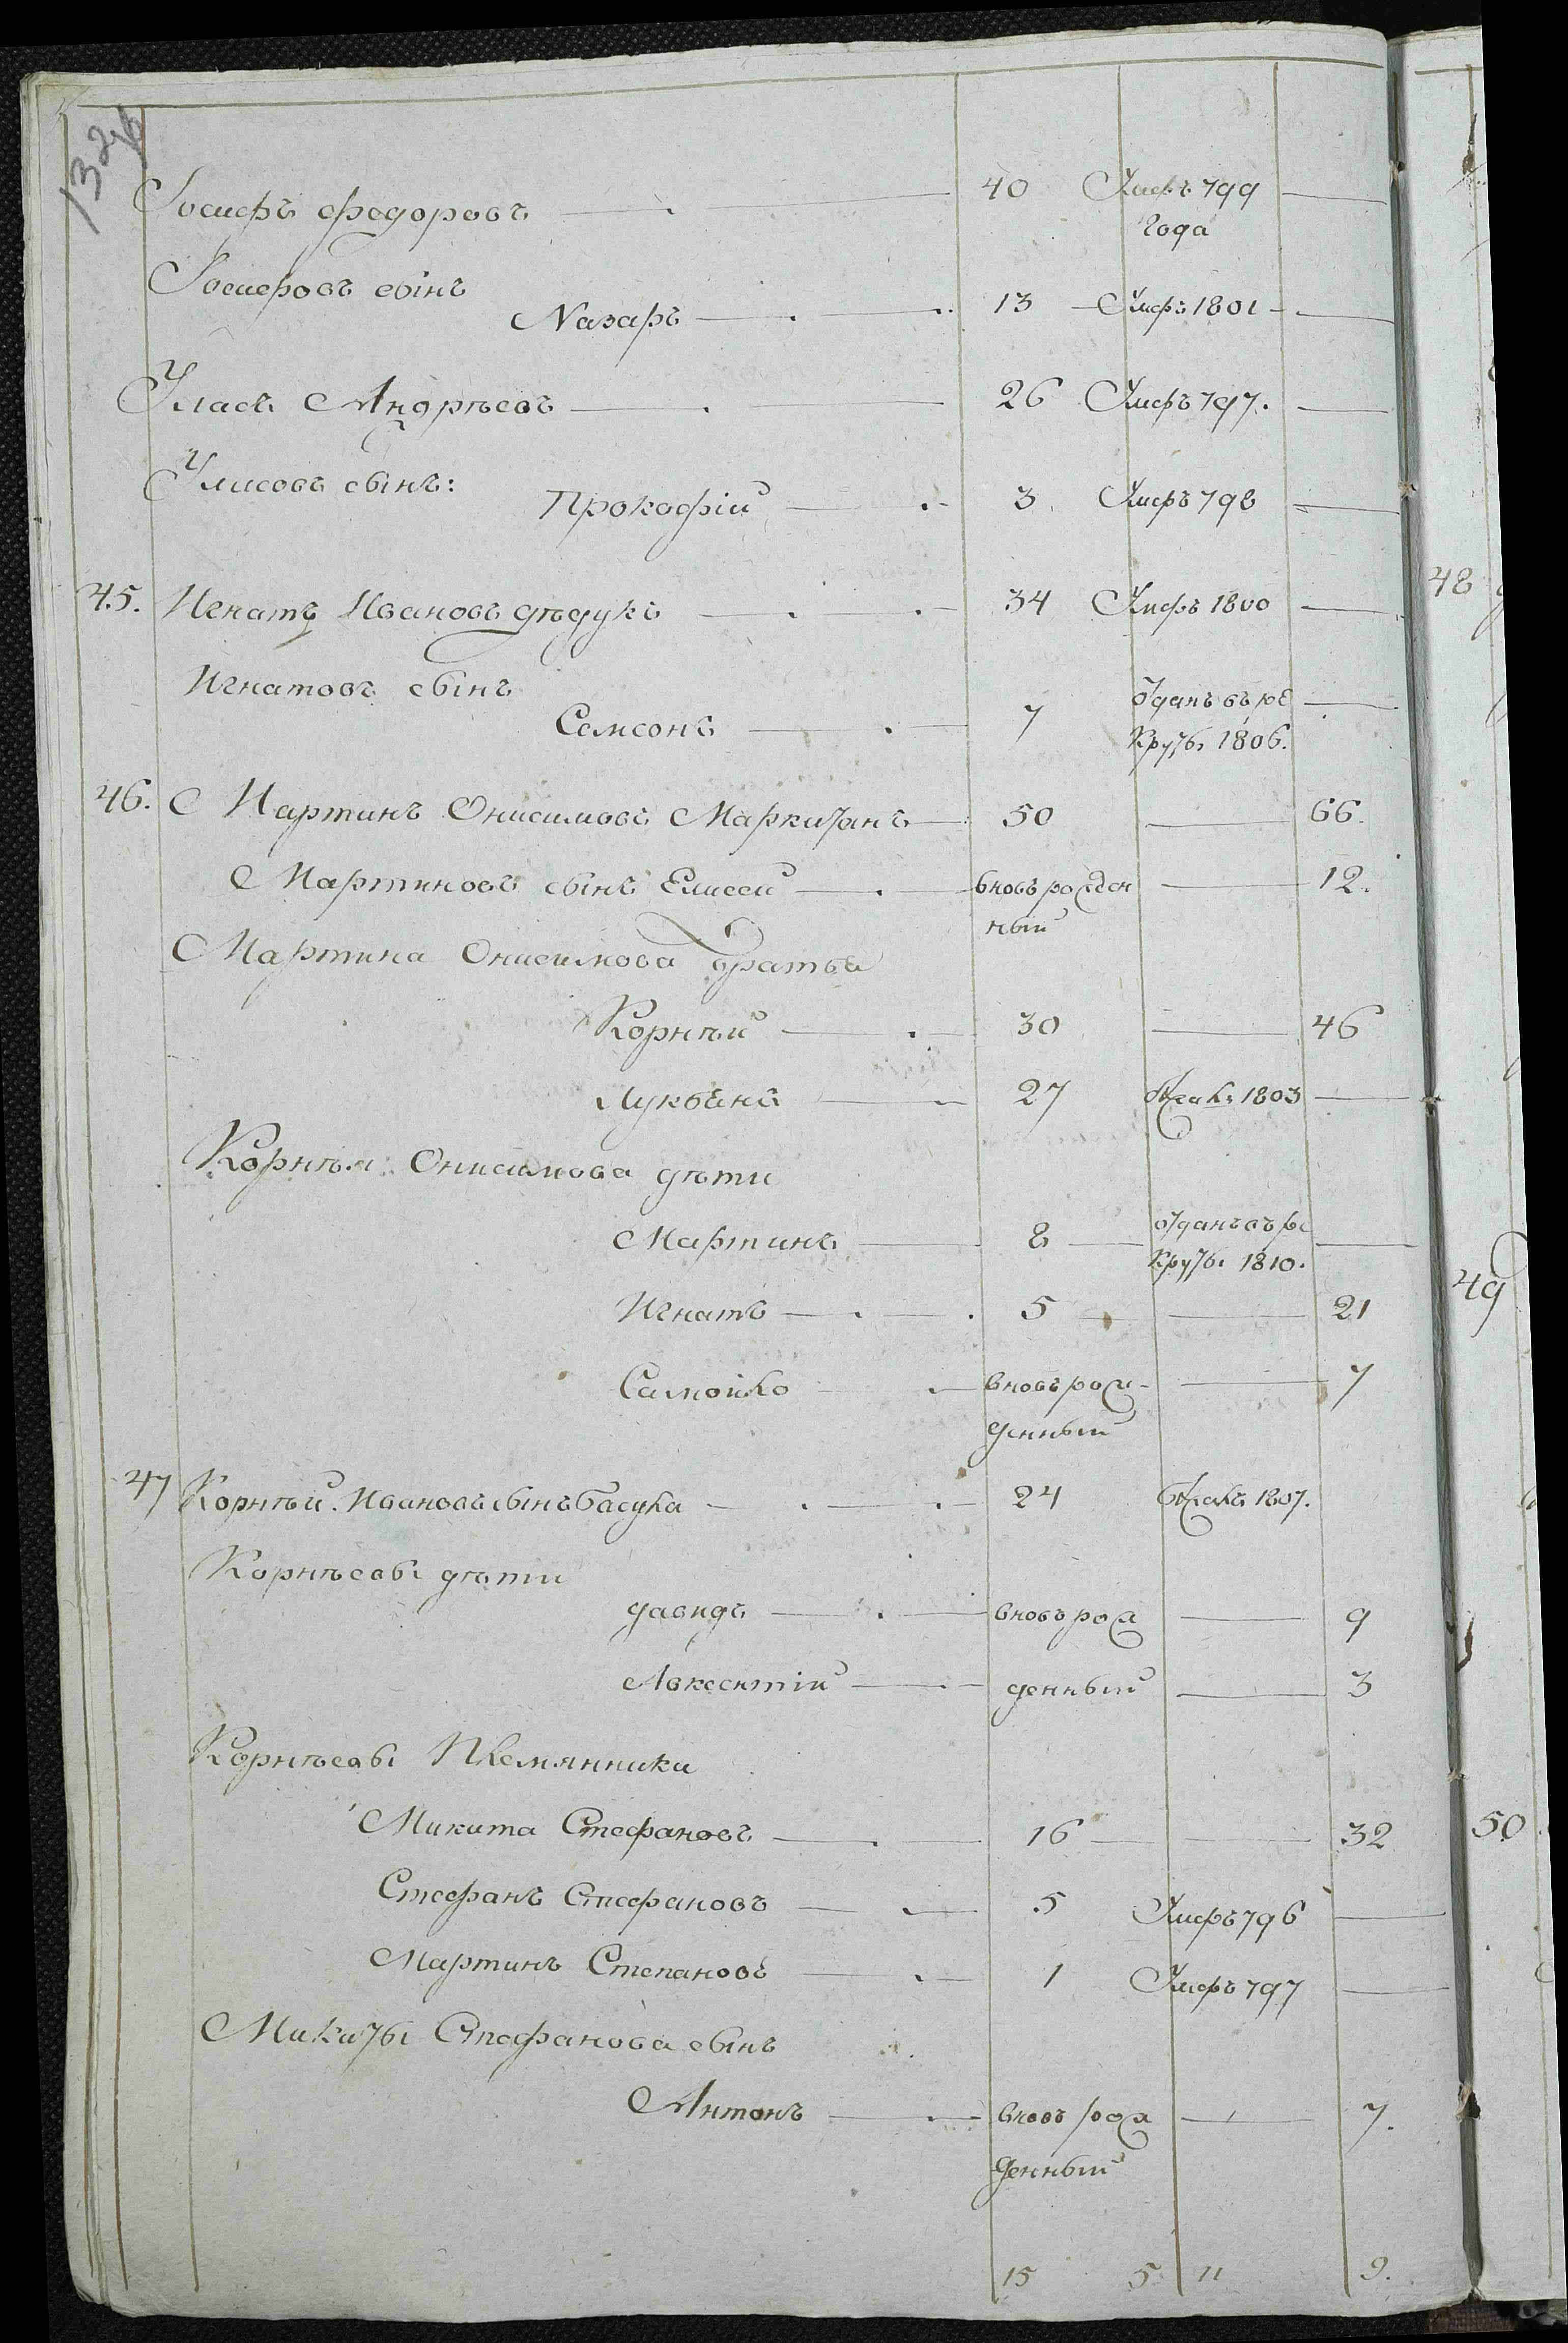 132
Іосифъ Федоровъ 40 Умеръ 799
года
Іосифовъ сынъ
Назаръ 13 Умеръ 1801
Уласъ Андрѣевъ 26 Умеръ 797.
Уласовъ сынъ:
Прокофій 3 Умеръ 798
45. Игнатъ Ивановъ дѣдукъ 34 Умеръ 1800
Игнатовъ сынъ
Самсонъ 7 Отданъ въ ре
круты 1806.
46. Мартинъ Онисимовъ Маркитанъ 50 66.
Мартиновъ сынъ Елисей вновь рожден 12.
ный
Мартина Онисимова братья
Корнѣй 30 46
Лукьянъ 27 бежалъ 1803
Корнѣя Онисимова дѣти
Мартинъ 8 отданъ въ ре
круты 1810.
Игнатъ 5 21
Самойло вновь рож- 7
денный
47 Корнѣй Ивановъ сынъ Басука 24 бежалъ 1807.
Корнѣевы дѣти
давидъ вновь рож 9
Авксентій денный 3
Корнѣевы Племянники
Микита Стефановъ 16 32
Стефанъ Стефановъ 5 Умеръ 796
Мартинъ Степановъ 1 Умеръ 797
Микиты Стефанова сынъ
Антонъ вновь рож 7.
денный
15 5 11 9.
48
49
50